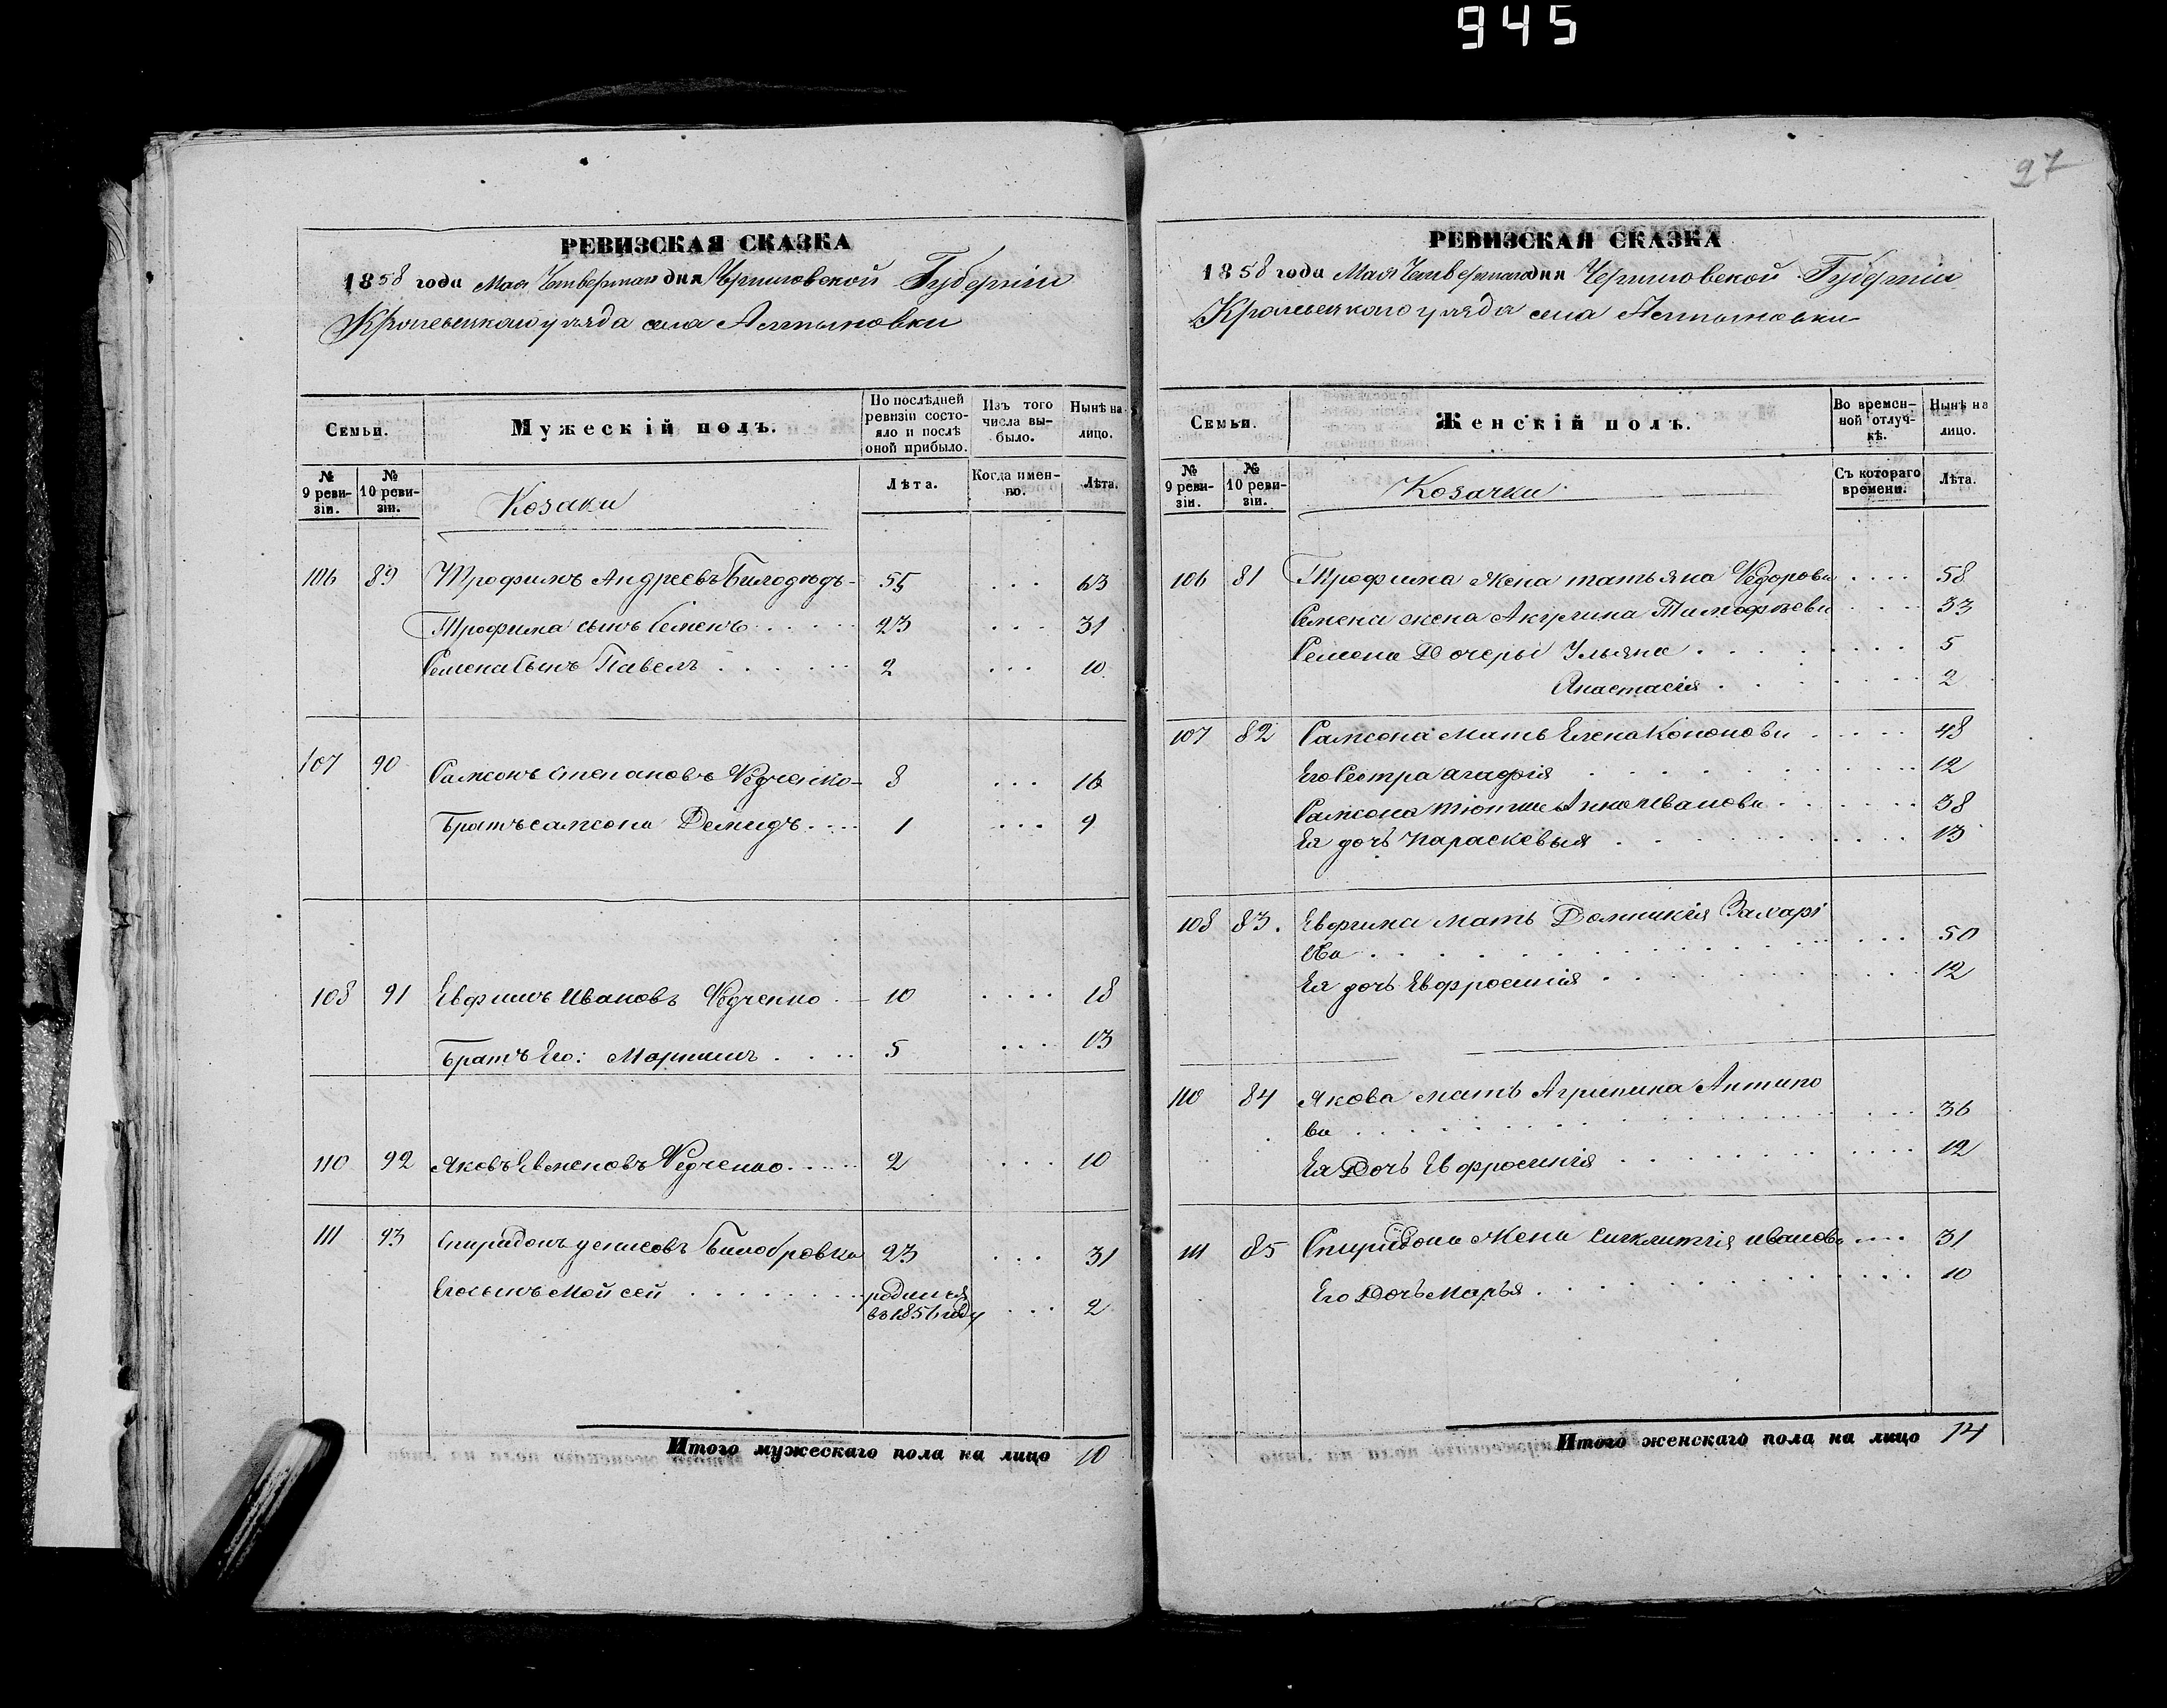 945
27
РЕВИЗСКАЯ СКАЗКА
1858 года Мая Четвертаго дня Черниговской Губерніи
Кролевецкаго уезда села Алтыновки
Семьи.
Мужескій полъ.
По послѣдней ревизіи состояло и послѣ оной прибыло.
Изъ того числа выбыло.
Нынѣ на лицо.
№ 9 ревизіи.
№ 10 ревизіи.
Козаки
Лѣта.
Когда именно.
Лѣта.
106 89 Трофимъ Андреевъ Билодѣдъ 55 63
Трофима сынъ Семенъ 23 31
Семена Сынъ Павелъ 2 10
107 90 Самсонъ Степановъ Федченко 8 16
Братъ Самсона Демидъ 1 9
108 91 Евфимъ Ивановъ Федченко 10 18
Братъ Его: Мартинъ 5 13
110 92 Яковъ Евменовъ Федченко 2 10
111 93 Спиридонъ Денисовъ Билобровка 23 31
Его сынъ Мойсей родился 2
въ 1856 году
Итого мужескаго пола на лицо 10
РЕВИЗСКАЯ СКАЗКА
1858 года Мая Четвертаго дня Черниговской Губерніи
Кролевецкаго уезда села Алтыновки
Семьи.
Женскій полъ.
Во временной отлучкѣ.
Нынѣ на лицо.
№ 9 ревизіи.
№ 10 ревизіи.
Козачки
Съ котораго времени.
Лѣта.
106 81 Трофима жена Татьяна Федорова 58
Семена жена Акулина Тимофеева 33
Семена Дочеры Ульяна 5
Анастасія 2
107 82 Самсона Мать Елена Кононова 48
Его Сестра Агафія 12
Самсона тіотка Анна Иванова 38
Ея дочь Параскевыя 13
108 83. Евфима мать Домникія Захарі
ева 50
Ея дочь Евфросинія 12
110 84 Якова мать Агрипина Антипо
ва 36
Ея Дочь Евфросинія 12
111 85 Спиридона Жена Сигклитія Иванова 31
Его Дочь Марья 10
Итого женскаго пола на лицо 14